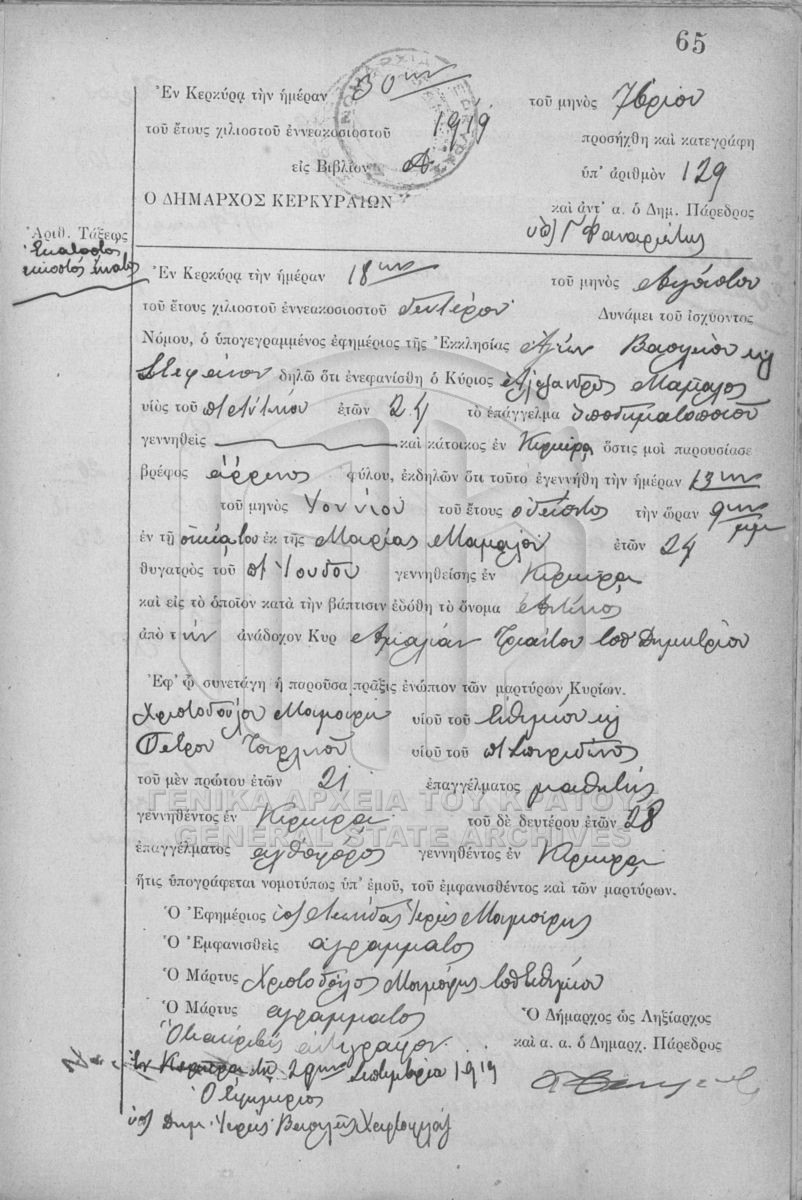 65
Ἐν Κερκύρᾳ τὴν ἡμέραν 30ην τοῦ μηνὸς 7βρίου
τοῦ ἔτους χιλιοστοῦ ἐννεακοσιοστοῦ 1919 προσήχθη καὶ κατεγράφη
εἰς Βιβλίον Α ὑπ' ἀριθμὸν 129
Ο ΔΗΜΑΡΧΟΣ ΚΕΡΚΥΡΑΙΩΝ
καὶ ἀντ' α. ὁ Δημ. Πάρεδρος
Ἀριθ. Τάξεως
Ἑκατοστὸς
εἰκοστός
Ἐν Κερκύρᾳ τὴν ἡμέραν 18ην τοῦ μηνὸς Αὐγούστου
τοῦ ἔτους χιλιοστοῦ ἐννεακοσιοστοῦ δευτέρου Δυνάμει τοῦ ἰσχύοντος
Νόμου, ὁ ὑπογεγραμμένος ἐφημέριος τῆς Ἐκκλησίας Ἁγίων Βασιλείου κὶ
Στεφάνου δηλῶ ὅτι ἐνεφανίσθη ὁ Κύριος Ἀλέξανδρος Μάμαλος
υἱὸς τοῦ π Ἀντωνίου ἐτῶν 24 τὸ ἐπάγγελμα ὑποδηματοποιοῦ
γεννηθεὶς καὶ κάτοικος ἐν Κερκύρᾳ ὅστις μοὶ παρουσίασε
βρέφος ἄρρενος φύλου, ἐκδηλῶν ὅτι τοῦτο ἐγεννήθη τὴν ἡμέραν 13ην
τοῦ μηνὸς Ἰουνίου τοῦ ἔτους τὴν ὥραν 9ην μμ
ἐν τῇ οἰκίᾳ του ἐκ τῆς Μαρίας Μαμάλου ἐτῶν 24
θυγατρὸς τοῦ γεννηθείσης ἐν Κερκύρᾳ
καὶ εἰς τὸ ὁποῖον κατὰ τὴν βάπτισιν ἐδόθη τὸ ὄνομα Ἀντώνιος
ἀπὸ τὴν ἀνάδοχον Κυρ Ἀμαλίαν τοῦ Δημητρίου
Ἐφ' ᾧ συνετάγη ἡ παροῦσα πρᾶξις ἐνώπιον τῶν μαρτύρων Κυρίων.
Χριστοδούλου υἱοῦ τοῦ Εὐθυμίου κὶ
Πέτρου υἱοῦ τοῦ π Σπυρίδωνος
τοῦ μὲν πρώτου ἐτῶν 21 ἐπαγγέλματος μαθητής
γεννηθέντος ἐν Κερκύρᾳ τοῦ δὲ δευτέρου ἐτῶν 28
ἐπαγγέλματος γεννηθέντος ἐν Κερκύρᾳ
ἥτις ὑπογράφεται νομοτύπως ὑπ' ἐμοῦ, τοῦ ἐμφανισθέντος καὶ τῶν μαρτύρων.
Ὁ Ἐφημέριος
Ὁ Ἐμφανισθεὶς ἀγράμματος
Ὁ Μάρτυς Χριστόδουλος τοῦ Εὐθυμίου
Ὁ Μάρτυς ἀγράμματος
Ὁ Δήμαρχος ὡς Ληξίαρχος
καὶ α. α. ὁ Δημαρχ. Πάρεδρος
Ὅτι ἀκριβὲς ἀντίγραφον
Ἐν Κερκύρᾳ τῇ 29 Σεπτεμβρίου 1919
Ὁ Ἐφημέριος
ΓΕΝΙΚΑ ΑΡΧΕΙΑ ΤΟΥ ΚΡΑΤΟΥΣ
GENERAL STATE ARCHIVES